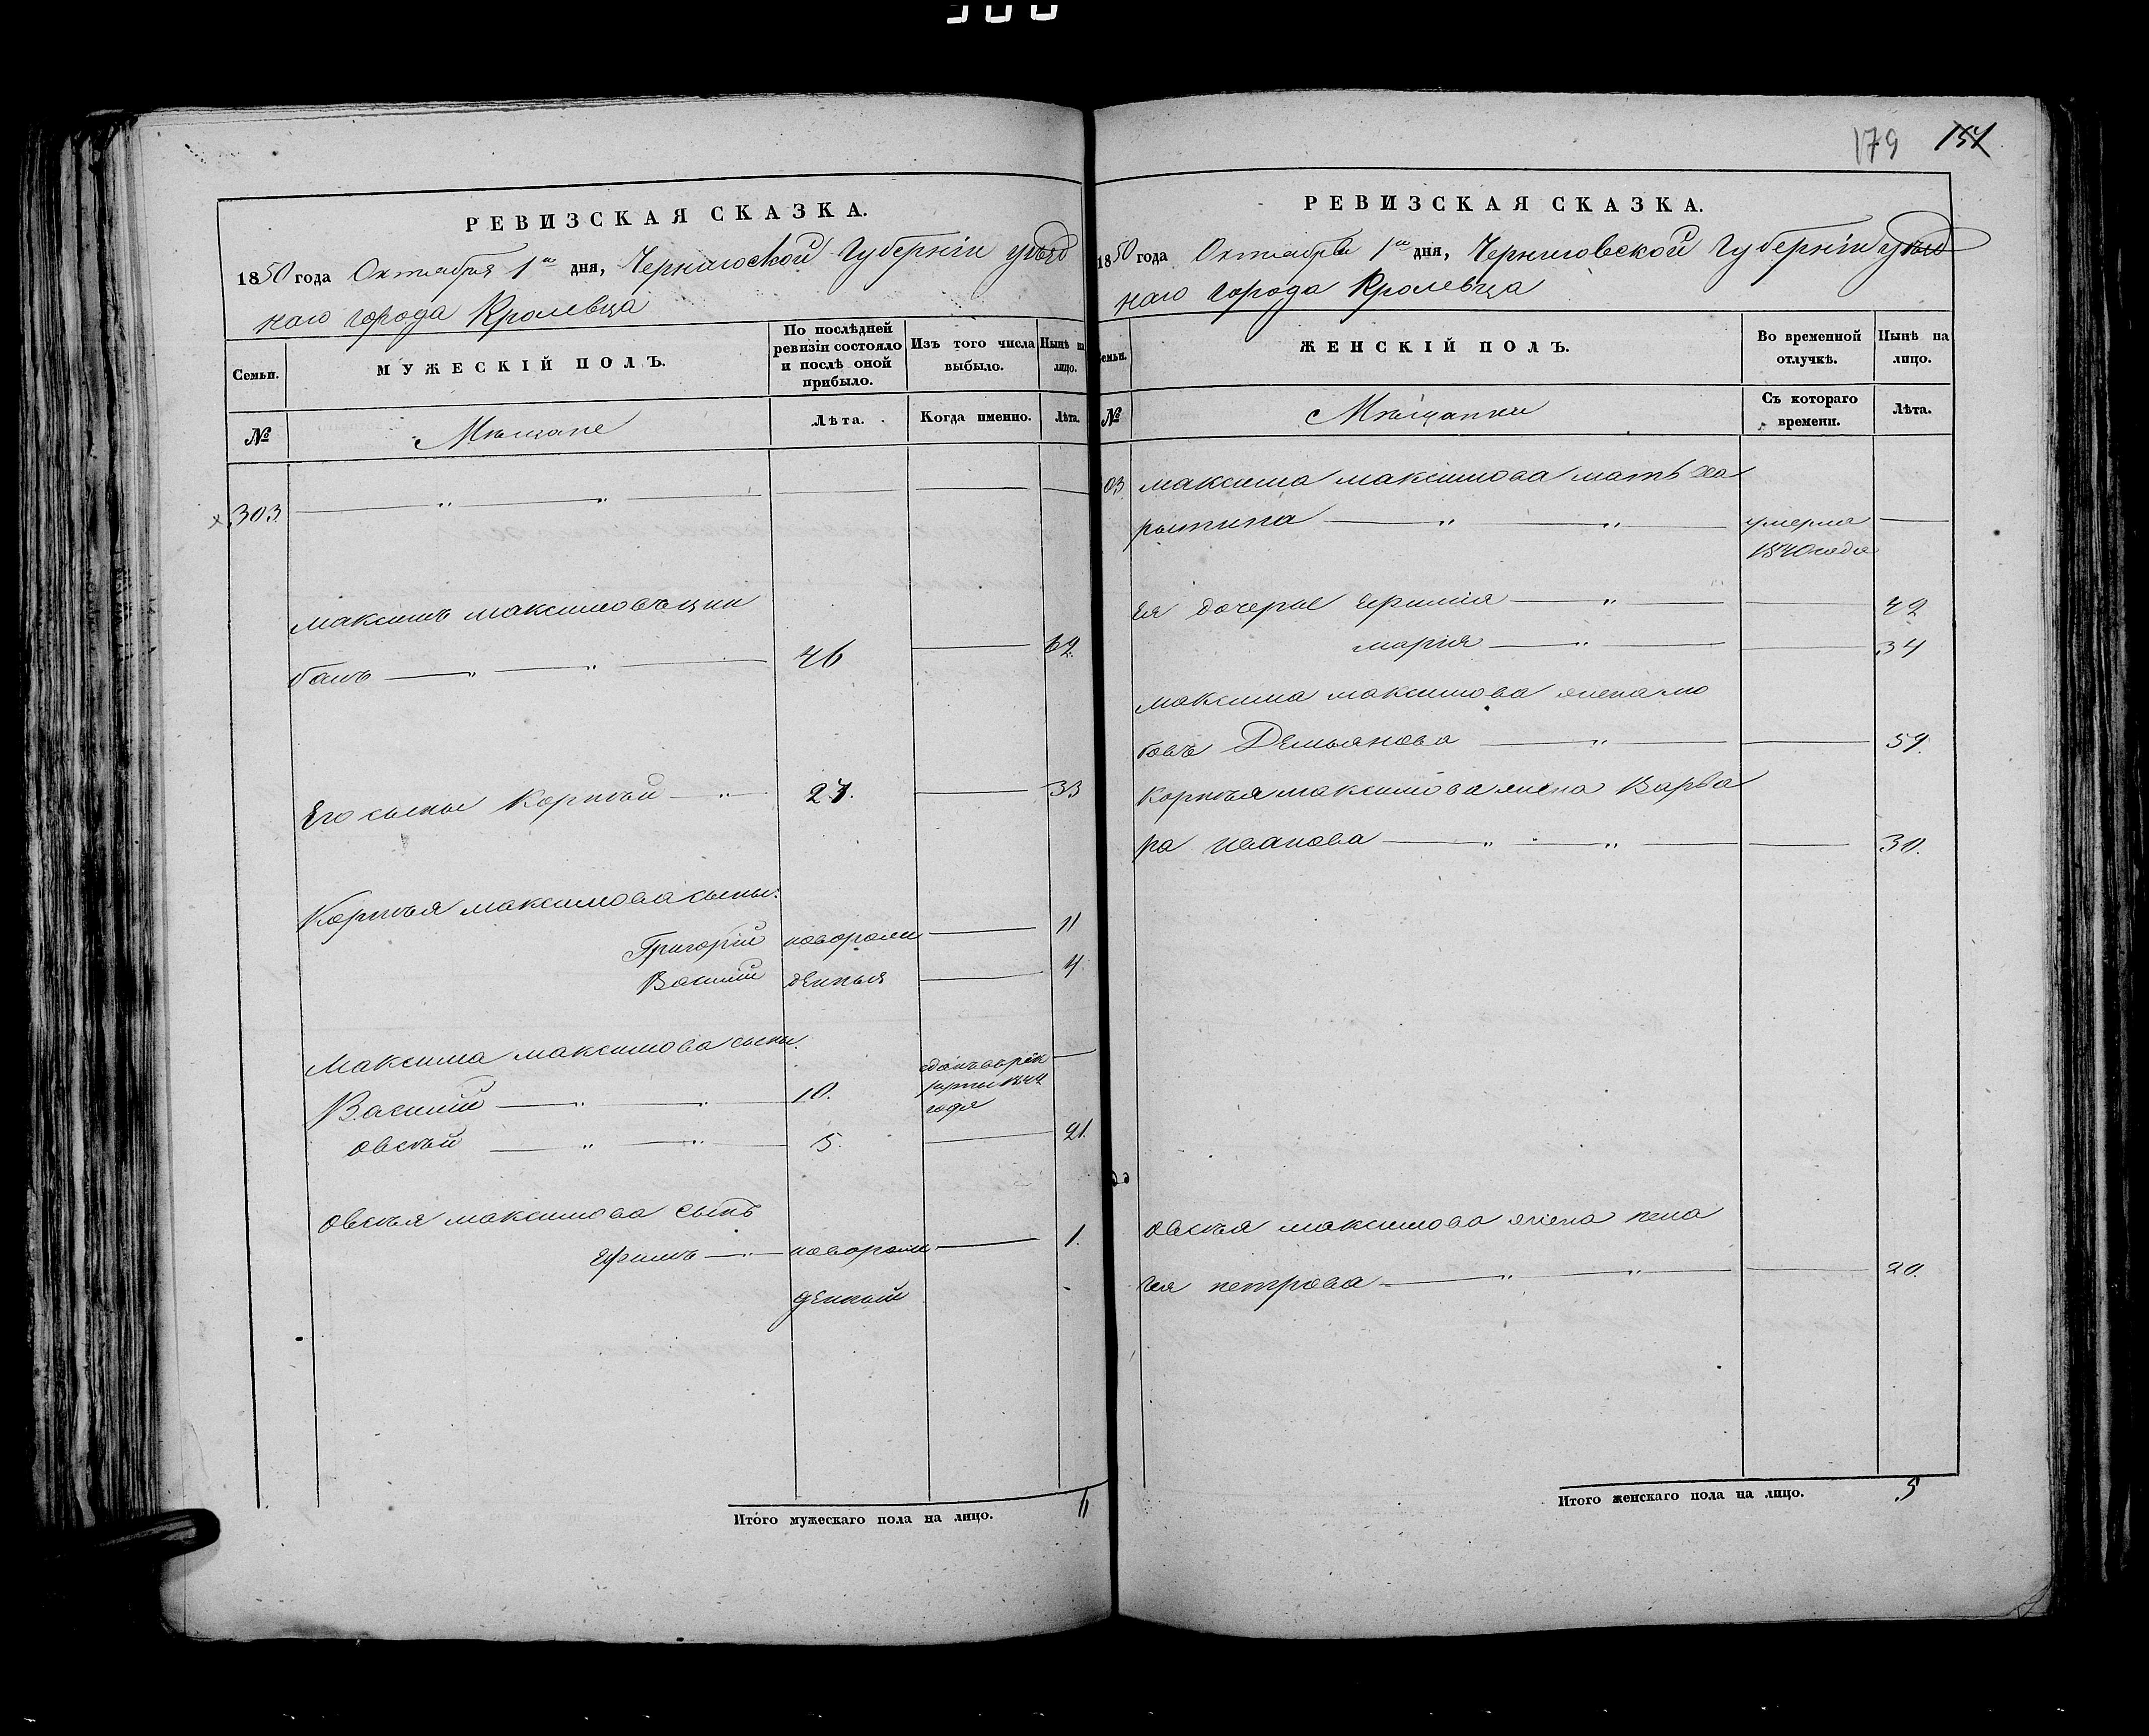 300
РЕВИЗСКАЯ СКАЗКА.
1850 года Октября 1го дня, Черниговской Губерніи уѣзд
наго города Кролевца
Семьи.
МУЖЕСКІЙ ПОЛЪ.
По послѣдней ревизіи состояло и послѣ оной прибыло.
Изъ того числа выбыло.
Нынѣ на лицо.
№
Мѣщане
Лѣта.
Когда именно.
Лѣта.
303.
Максимъ Максимовъ Цим
балъ 46 62.
Его сынъ Корнѣй 21. 33
Корнѣя Максимова сыны:
Григорій новорож 11
Василій денныя 4.
Максима Максимова сыны.
Василій 10. сданъ въ рек
руты 1844
года
Овсѣй 5. 21.
Овсѣя Максимова сынъ
Ефимъ новорож 1.
денный
Итого мужескаго пола на лицо. 6
179 151
РЕВИЗСКАЯ СКАЗКА.
1850 года Октября 1го дня, Черниговской Губерніи уѣзд
наго города Кролевца
Семьи.
ЖЕНСКІЙ ПОЛЪ.
Во временной отлучкѣ.
Нынѣ на лицо.
№
Мѣщанки
Съ котораго времени.
Лѣта.
03 Максима Максимова мать Ха
ритина умерла
1840 года
Ея дочери 42
Марія 34
Максима Максимова жена Лю
бовъ Демьянова 59.
Корнѣя Максимова жена Варва
ра Иванова 30.
Овсѣя Максимова жена Пела
гея Петрова 20.
Итого женскаго пола на лицо. 5